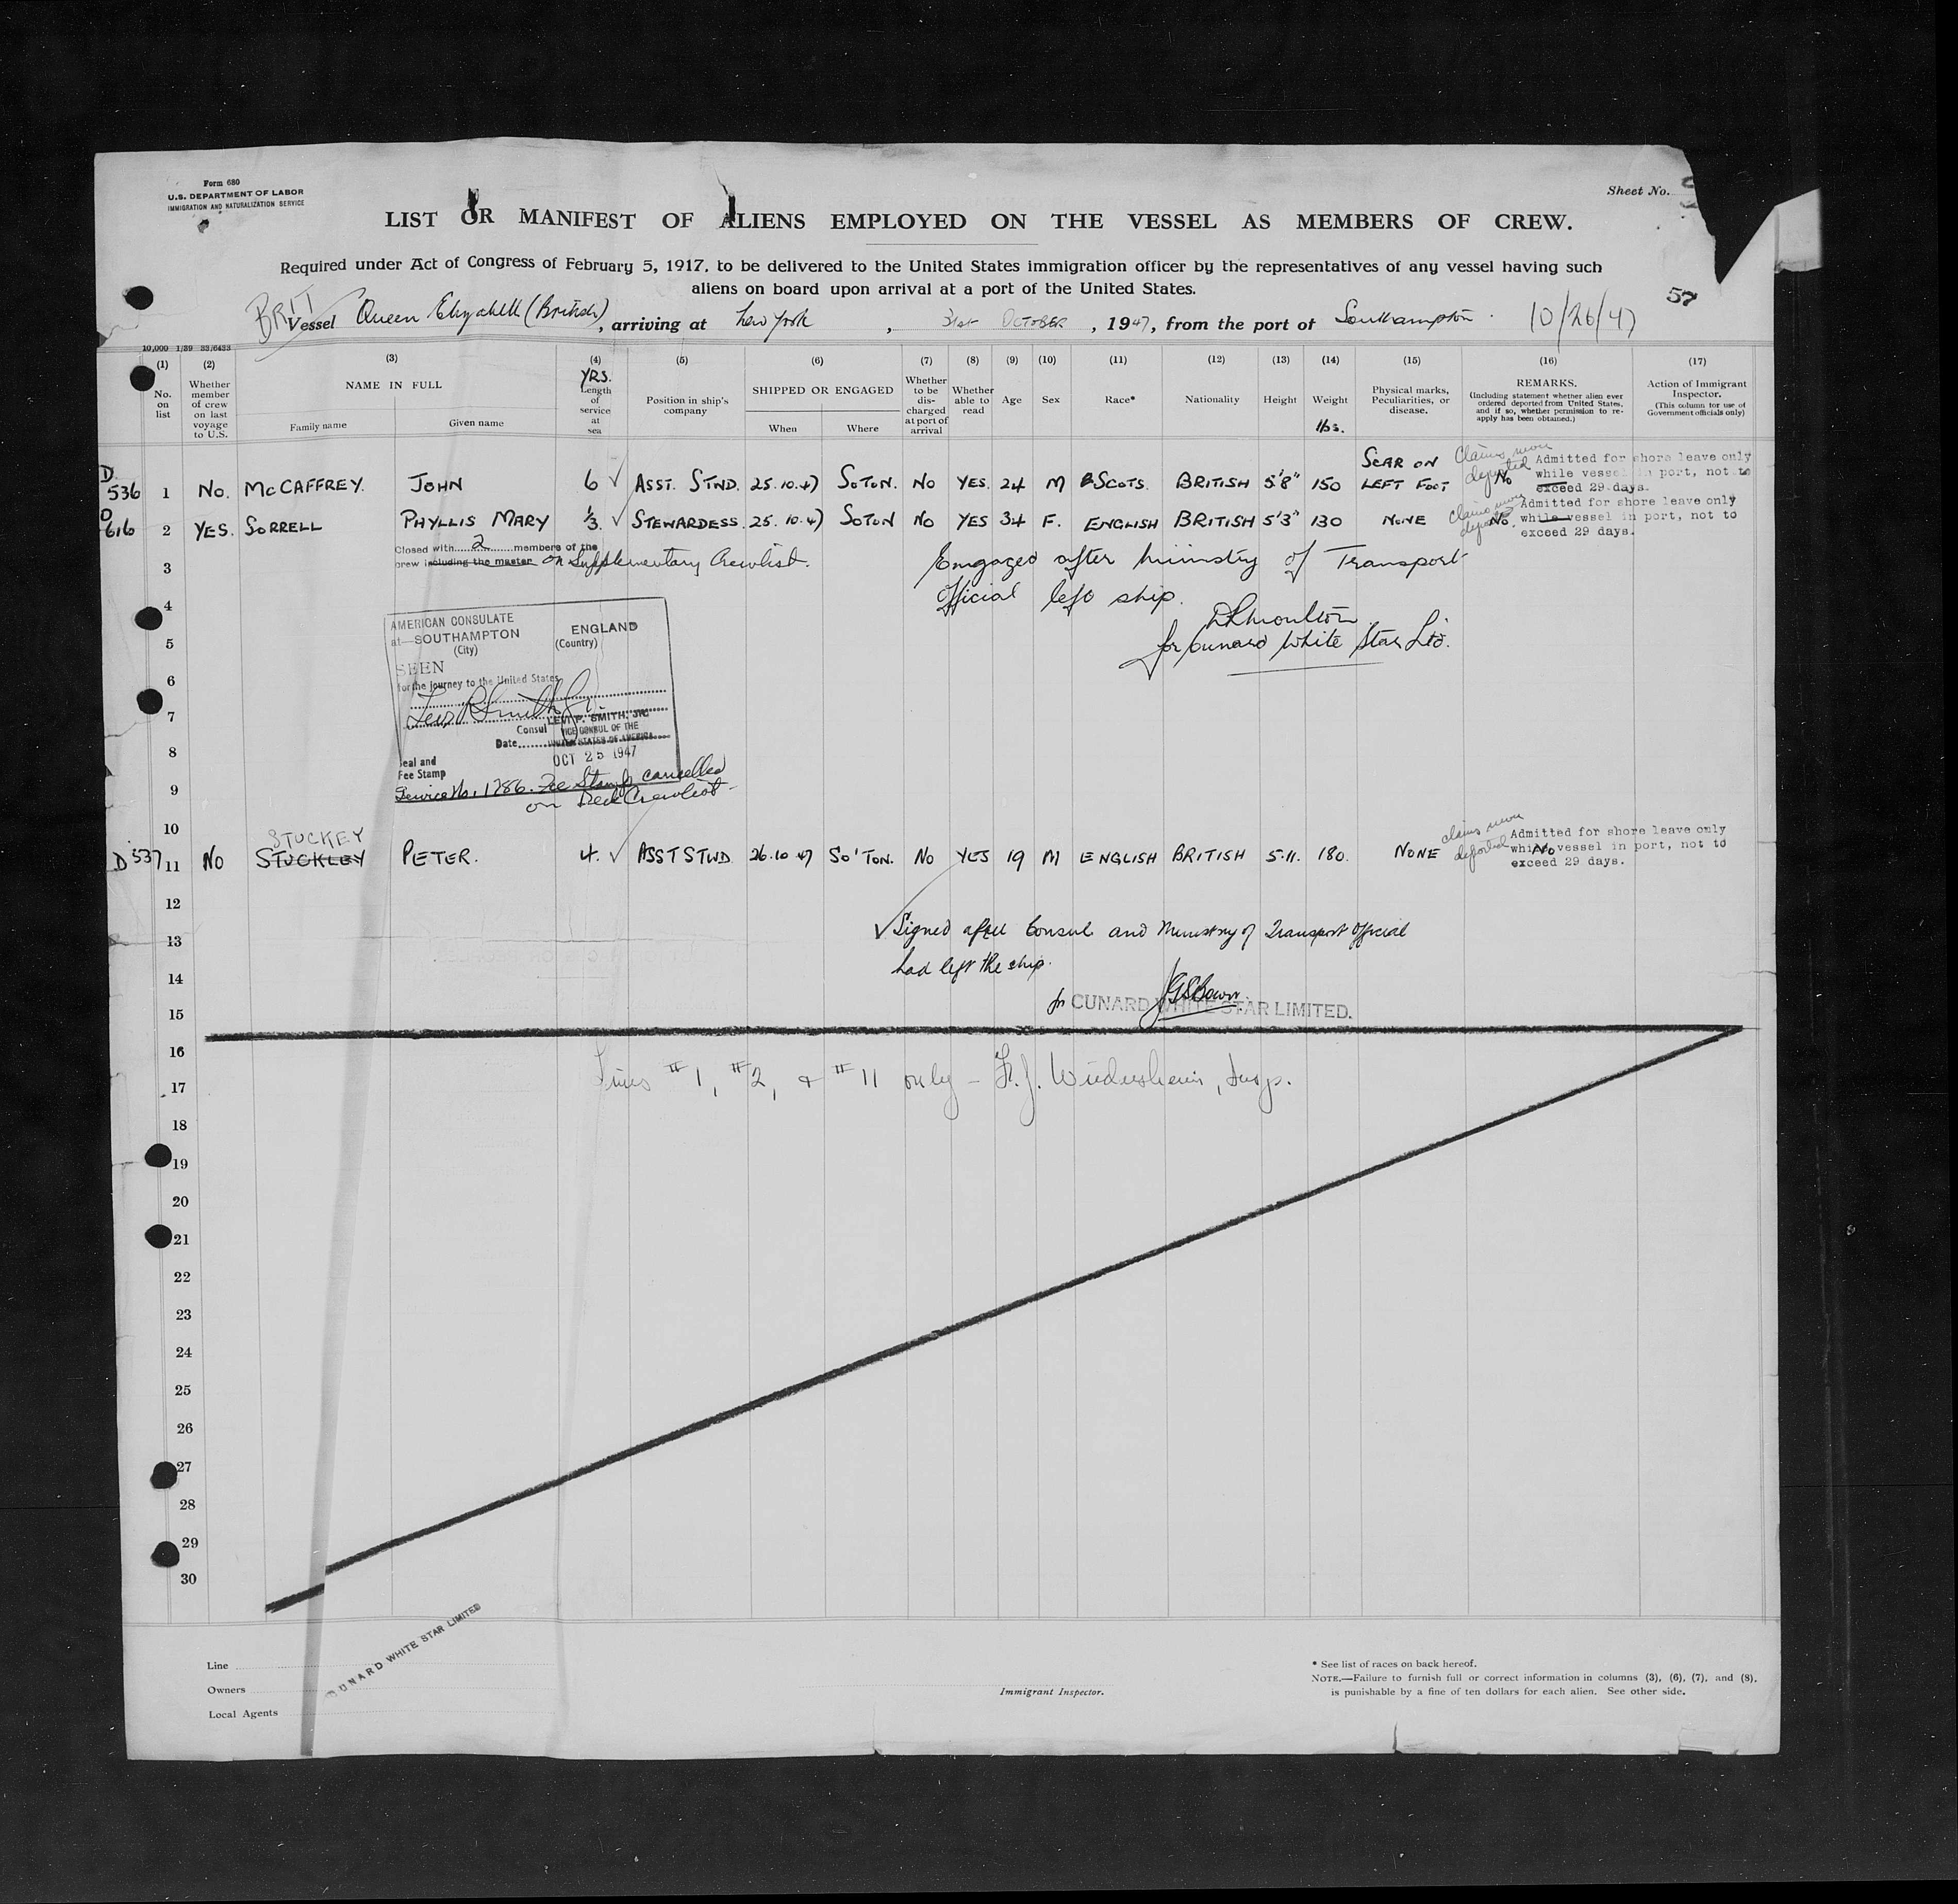 Form 680
U.S. DEPARTMENT OF LABOR
IMMIGRATION AND NATURALIZATION SERVICE
Sheet No.
LIST OR MANIFEST OF ALIENS EMPLOYED ON THE VESSEL AS MEMBERS OF CREW.
Required under Act of Congress of February 5, 1917, to be delivered to the United States immigration officer by the representatives of any vessel having such
aliens on board upon arrival at a port of the United States.
57
BRIT
Vessel Queen Elizabeth (British), arriving at New York, 31st OCTOBER, 1947, from the port of Southampton. 10/26/47
10,000 1/39 33/6433
(1) (2) (3) (4) (5) (6) (7) (8) (9) (10) (11) (12) (13) (14) (15) (16) (17)
No. on list
Whether member of crew on last voyage to U.S.
NAME IN FULL
Family name Given name
YRS.
Length of service at sea
Position in ship's company
SHIPPED OR ENGAGED
When Where
Whether to be discharged at port of arrival
Whether able to read
Age
Sex
Race*
Nationality
Height
Weight
lbs.
Physical marks, Peculiarities, or disease.
REMARKS.
(Including statement whether alien ever ordered deported from United States, and if so, whether permission to re-apply has been obtained.)
Action of Immigrant Inspector.
(This column for use of Government officials only)
D 536 1 No. McCAFFREY. JOHN 6 ✓ ASST. STWD. 25.10.47 SOTON. NO YES. 24 M SCOTS. BRITISH 5'8" 150 SCAR ON LEFT FOOT No
Claims never deported
Admitted for shore leave only
while vessel in port, not to
exceed 29 days.
D 616 2 YES. SORRELL PHYLLIS MARY 1/3 ✓ STEWARDESS. 25.10.47 SOTON NO YES 34 F. ENGLISH BRITISH 5'3" 130 NONE No.
Claims never deported
Admitted for shore leave only
while vessel in port, not to
exceed 29 days.
Closed with 2 members of the
crew including the master on Supplementary Crewlist.
3
Engaged after Ministry of Transport
Official left ship.
4
D.R. Moulton
for Cunard White Star Ltd.
AMERICAN CONSULATE
at SOUTHAMPTON ENGLAND
(City) (Country)
5
SEEN
for the journey to the United States
6
Levi P. Smith Jr.
7
LEVI P. SMITH, JR.
Consul VICE CONSUL OF THE
Date UNITED STATES OF AMERICA
8
OCT 25 1947
Seal and
Fee Stamp
Service No. 1286. Fee Stamp cancelled
on Deck Crewlist.
9
10
STUCKEY
D 537 11 No STUCKLEY PETER. 4. ✓ ASST STWD 26.10.47 SO'TON. NO YES 19 M ENGLISH BRITISH 5.11. 180. NONE No
claims never deported
Admitted for shore leave only
while vessel in port, not to
exceed 29 days.
12
✓ Signed after Consul and Ministry of Transport Official
13
had left the ship.
14
for CUNARD WHITE STAR LIMITED.
15
16
Lines #1, #2, & #11 only - Insp.
17
18
19
20
21
22
23
24
25
26
27
28
29
30
CUNARD WHITE STAR LIMITED
Line
Owners
Local Agents
Immigrant Inspector.
* See list of races on back hereof.
NOTE.—Failure to furnish full or correct information in columns (3), (6), (7), and (8),
is punishable by a fine of ten dollars for each alien. See other side.